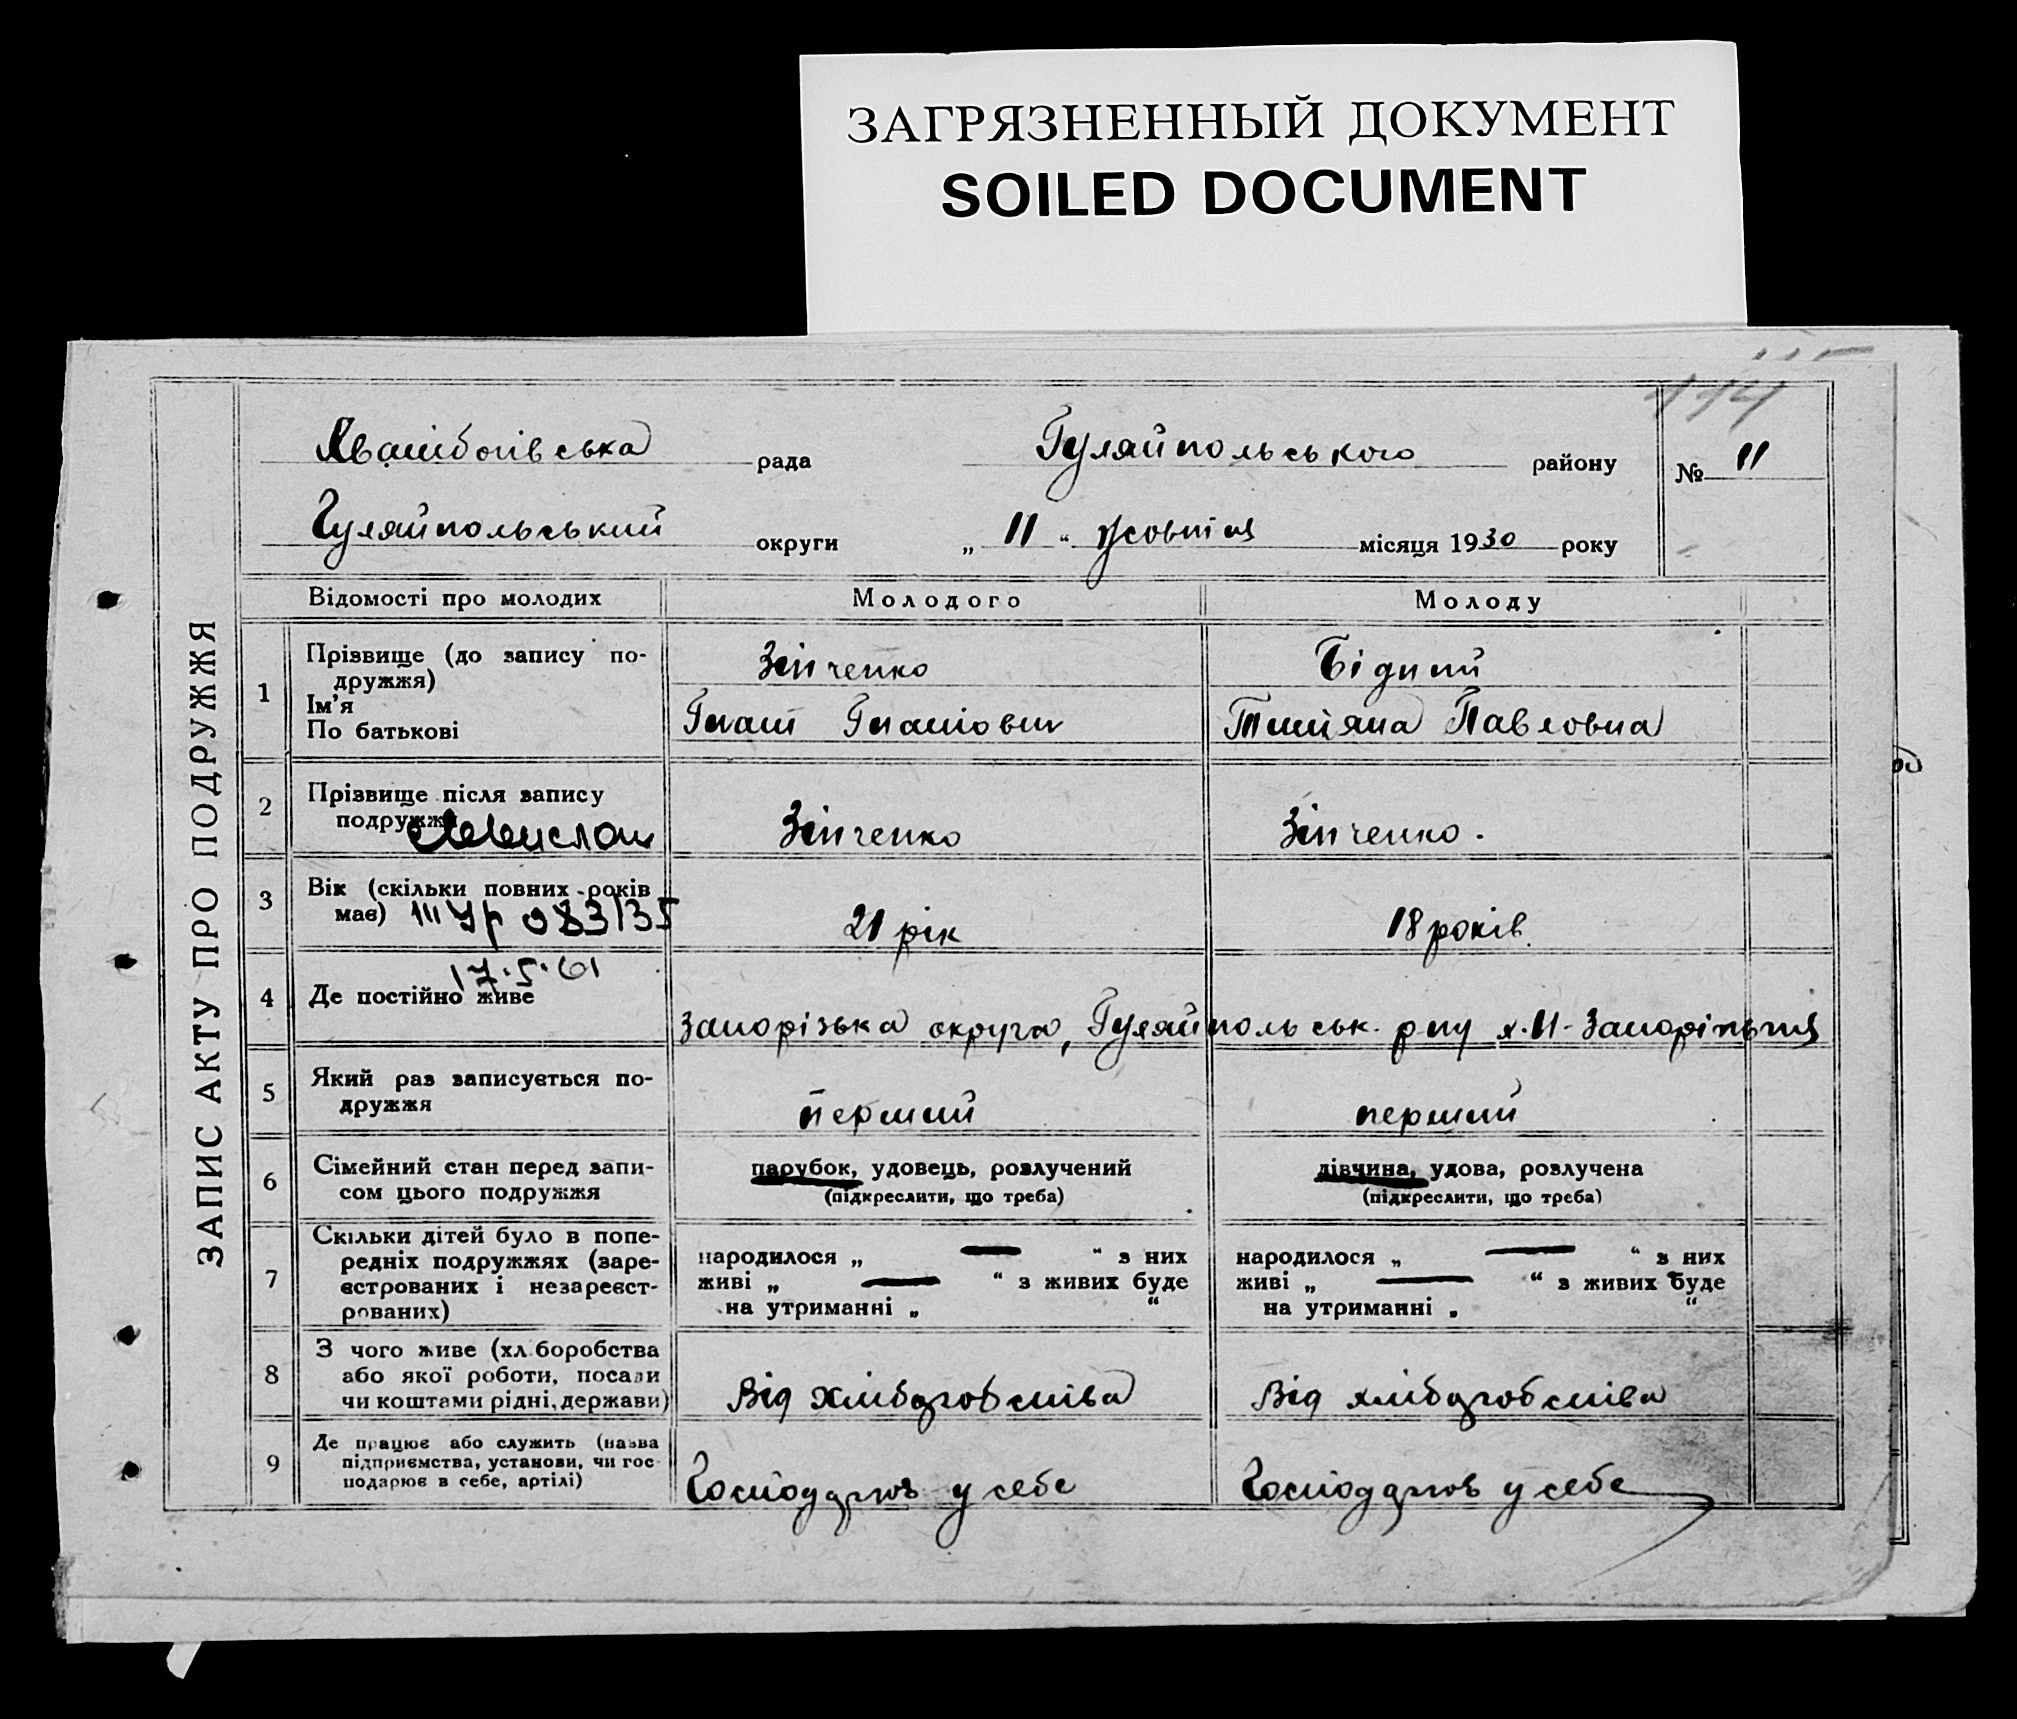 ЗАГРЯЗНЕННЫЙ ДОКУМЕНТ
SOILED DOCUMENT
114
рада Гуляйпольського району № 11
Гуляйпольський округи „ 11 “ жовтня місяця 1930 року
ЗАПИС АКТУ ПРО ПОДРУЖЖЯ
Відомості про молодих Молодого Молоду
1 Прізвище (до запису по- Зінченко Бідний
дружжя)
Ім'я Гнат Гнатович Тетяна Павловна
По батькові
2 Прізвище після запису
подружжя Зінченко Зінченко.
3 Вік (скільки повних років
має) III УР 083135 21 рік 18 років.
17.5.61
4 Де постійно живе
Запорізька округа, Гуляйпольськ. р-ну х. Н-Запоріжжя
5 Який раз записується по-
дружжя перший перший
6 Сімейний стан перед запи- парубок, удовець, розлучений дівчина, удова, розлучена
сом цього подружжя (підкреслити, що треба) (підкреслити, що треба)
7 Скільки дітей було в попе-
редніх подружжях (заре- народилося „ — “ з них народилося „ — “ з них
єстрованих і незареєст- живі „ — “ з живих буде живі „ — “ з живих буде
рованих) на утриманні „ “ на утриманні „ “
8 З чого живе (хліборобства
або якої роботи, посади
чи коштами рідні, держави) Від хлібороbства Від хліборобства
9 Де працює або служить (назва
підприємства, установи, чи гос-
подарює в себе, артілі) Господарює у себе Господарює у себе